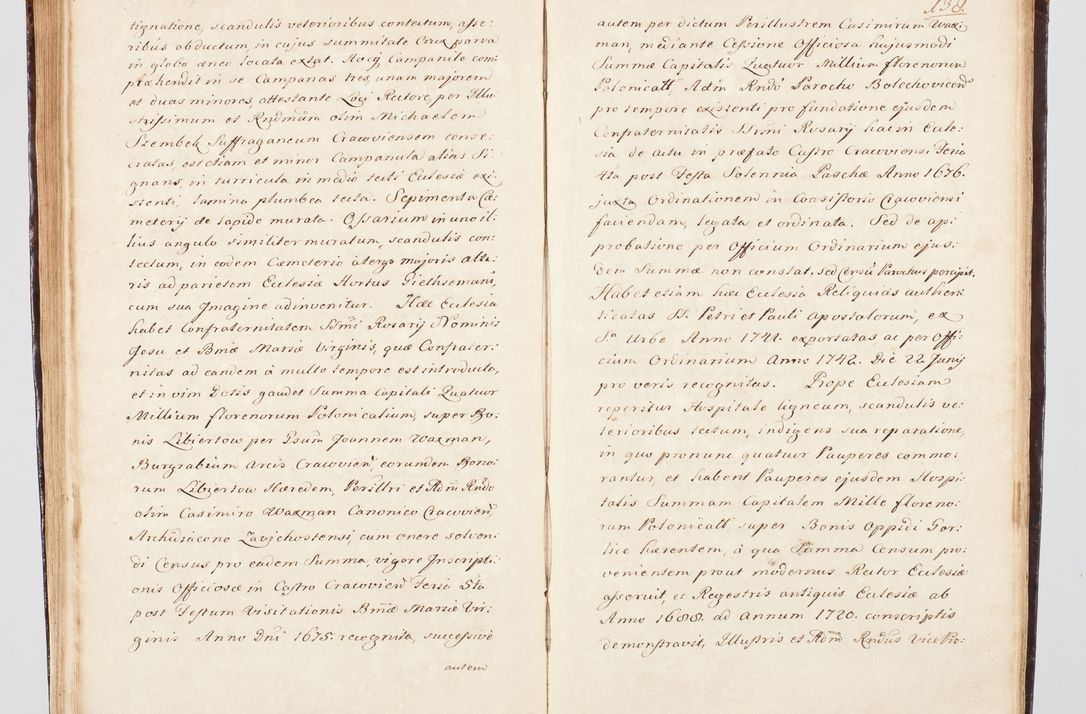 lignatione, scandulis veterioribus contectum, asse-
ribus obductum, in cujus summitate Crux parva
in globo æneo locata extat. Hocq Campanile com:
præhendit in se Campanas tres, unam majorem
et duas minores, attestante Loci Rectore, per Illu
strissimum et Rndmum olim Michaelem
Szembek Suffraganeum Cracoviensem conse:
cratas, est etiam et minor Campanula alias Si
gnans, in turricula in medio tecti Eclesiæ exi
stenti, lamina plumbea tecta. Sepimenta Cæ
meterij de lapide murata. Ossarium in uno il:
lius angulo similiter muratum, scandulis con:
tectum, in eodem Cæmeterio à tergo majoris alta:
ris ad parietem Eclesiæ Hortus Giethsemani,
cum sua Imagine adinvenitur. Hæc Eclesia
habet Confraternitatem SSmi Rosarij Nominis
Jesu et Bmæ Mariæ Virginis, quæ Confrater:
nitas ad eandem à multo tempore est introducta,
et in vim Dotis gaudet Summa Capitali Quatuor
Millium florenorum Polonicalium, super Bo:
nis Libiertow per Gsum Joannem Waxman,
Burgrabium Arcis Cracovien, eorundem Bono:
rum Libiertow Hæredem, Perillri et Adm Rndo
olim Casimiro Waxman Canonico Cracovien,
Archidiacono Zavichostensi, cum onere solven:
di Census pro eadem Summa, vigore Inscripti:
onis Officiosæ in Castro Cracovien Feria 5ta
post Festum Visitationis Bmæ Mariæ Vir:
ginis Anno Dni 1675. recognita, successivè
autem
138.
autem per dictum Perillustrem Casimirum Wax:
man, mediante Cessione Officiosa hujusmodi
Summæ Capitalis Quatuor Millium florenorum
Polonicall. Adm Rndo Parocho Bolechovicen
pro tempore existenti pro fundatione ejusdem
Confraternitatis SSmi Rosarij hac in Ecle:
sia de actu in præfato Castro Cracoviensi Feria
4ta post Festa Solennia Paschæ Anno 1676.
juxta Ordinationem in Consistorio Cracoviensi
faciendam, legata et ordinata. Sed de ap:
probatione per Officium Ordinarium ejus:
dem Summæ non constat, sed censū Parochus percipit.
Habet etiam hæc Eclesia Reliquias authen:
ticatas SS. Petri et Pauli Apostolorum, ex
Sa Urbe Anno 1741. exportatas, ac per Offi:
cium Ordinarium Anno 1742. Die 22 Junij
pro veris recognitas. Prope Eclesiam
reperitur Hospitale ligneum, scandulis ve:
terioribus tectum, indigens sua reparatione,
in quo pronunc quatuor Pauperes commo:
rantur, et habent Pauperes ejusdem Hospi:
talis Summam Capitalem Mille floreno:
rum Polonicall super Bonis Oppidi Gor:
lice hærentem, à qua Summa Censum pro:
venientem prout modernus Rector Eclesiæ
asseruit, et Regestris antiquis Eclesiæ ab
Anno 1688. ad Annum 1720. conscriptis
demonstravit, Illustris et Adm Rndus Vice Pro: